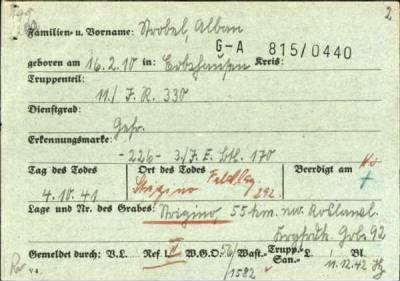 2
Familien- u. Vorname: Strobel, Alban
G-A 815/0440
geboren am 16.2.10 in: Erbshausen Kreis:
Truppenteil:
11./ J.R. 330
Dienstgrad:
Gefr.
Erkennungsmarke:
-226- 3./J.E. Btl. 170
Tag des Todes Ort des Todes Beerdigt am
4.10.41 Strigino Feldlaz 292.
Lage und Nr. des Grabes: Strigino, 55 km. nw. Roslawl.
Grab 92
Gemeldet durch: V.L. Ref. IV W.G.O. 56/1582 Wast.- Trupp.- San.- L. Bl.
11.12.42
V 4.